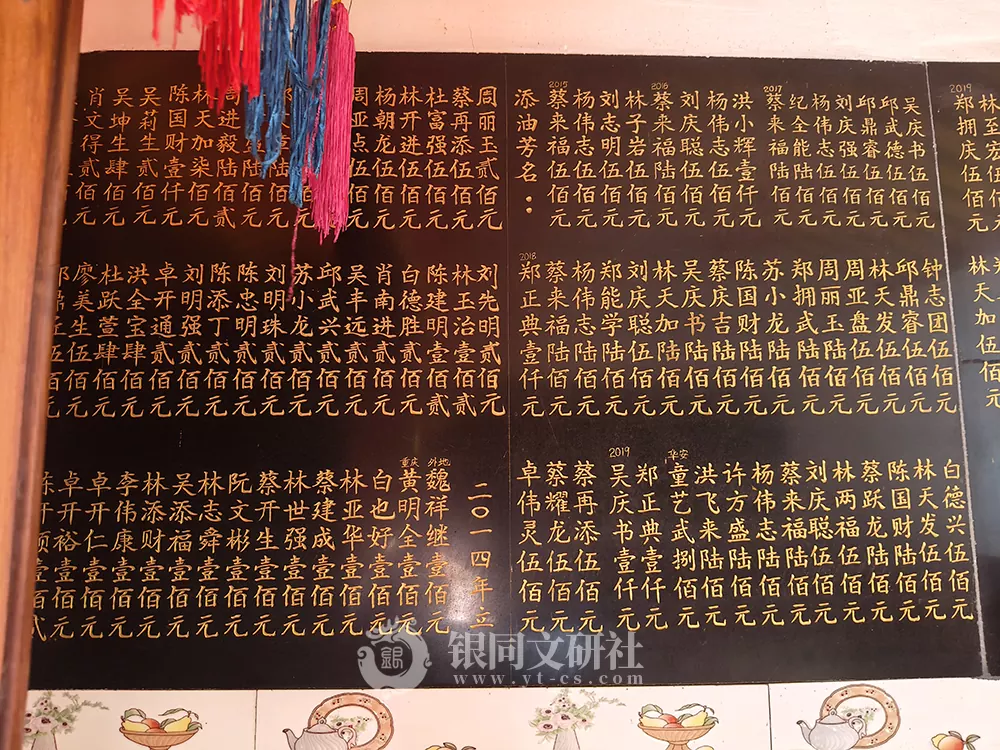 肖文得贰佰元
吴坤生肆佰元
吴莉生贰佰元
陈国财壹仟元
林天加柒佰元
周进毅陆佰贰
周亚点伍佰元
杨朝龙伍佰元
林开进伍佰元
杜富强伍佰元
蔡再添伍佰元
周丽玉贰佰元
廖美生伍佰元
杜跃营肆佰元
洪全宝肆佰元
卓开通贰佰元
刘明强贰佰元
陈添丁贰佰元
陈忠明贰佰元
刘明珠贰佰元
苏小龙贰佰元
邱武兴贰佰元
吴丰远贰佰元
肖南进贰佰元
白德胜贰佰元
陈建明壹佰贰
林玉治壹佰贰
刘先明贰佰元
卓开裕壹佰元
卓开仁壹佰元
李伟康壹佰元
林添财壹佰元
吴添福壹佰元
林志舜壹佰元
阮文彬壹佰元
蔡开生壹佰元
林世强壹佰元
蔡建成壹佰元
林亚华壹佰元
白也好壹佰元
重庆
黄明全壹佰元
外地
魏祥继壹佰元
二〇一四年立
添油芳名：
2015
蔡来福伍佰元
杨伟志伍佰元
刘志明伍佰元
林子岩伍佰元
2016
蔡来福陆佰元
刘庆聪伍佰元
杨伟志伍佰元
洪小辉壹仟元
2017
蔡来福陆佰元
纪全能陆佰元
杨伟志伍佰元
刘庆强伍佰元
邱鼎睿伍佰元
邱武德伍佰元
吴庆书伍佰元
2018
郑正典壹仟元
蔡来福陆佰元
杨伟志陆佰元
郑能学陆佰元
刘庆聪伍佰元
林天加陆佰元
吴庆书陆佰元
蔡庆吉陆佰元
陈国财陆佰元
苏小龙陆佰元
郑拥武陆佰元
周丽玉陆佰元
周亚盘伍佰元
林天发伍佰元
邱鼎睿伍佰元
钟志团伍佰元
卓伟灵伍佰元
蔡耀龙伍佰元
蔡再添伍佰元
2019
吴庆书壹仟元
郑正典壹仟元
华安
童艺武捌佰元
洪飞来陆佰元
许方盛陆佰元
杨伟志陆佰元
蔡来福陆佰元
刘庆聪伍佰元
林两福伍佰元
蔡跃龙陆佰元
陈国财陆佰元
林天发伍佰元
白德兴伍佰元
2019
郑拥庆伍佰元
林天加伍佰元
银同文研社
www.yt-cs.com